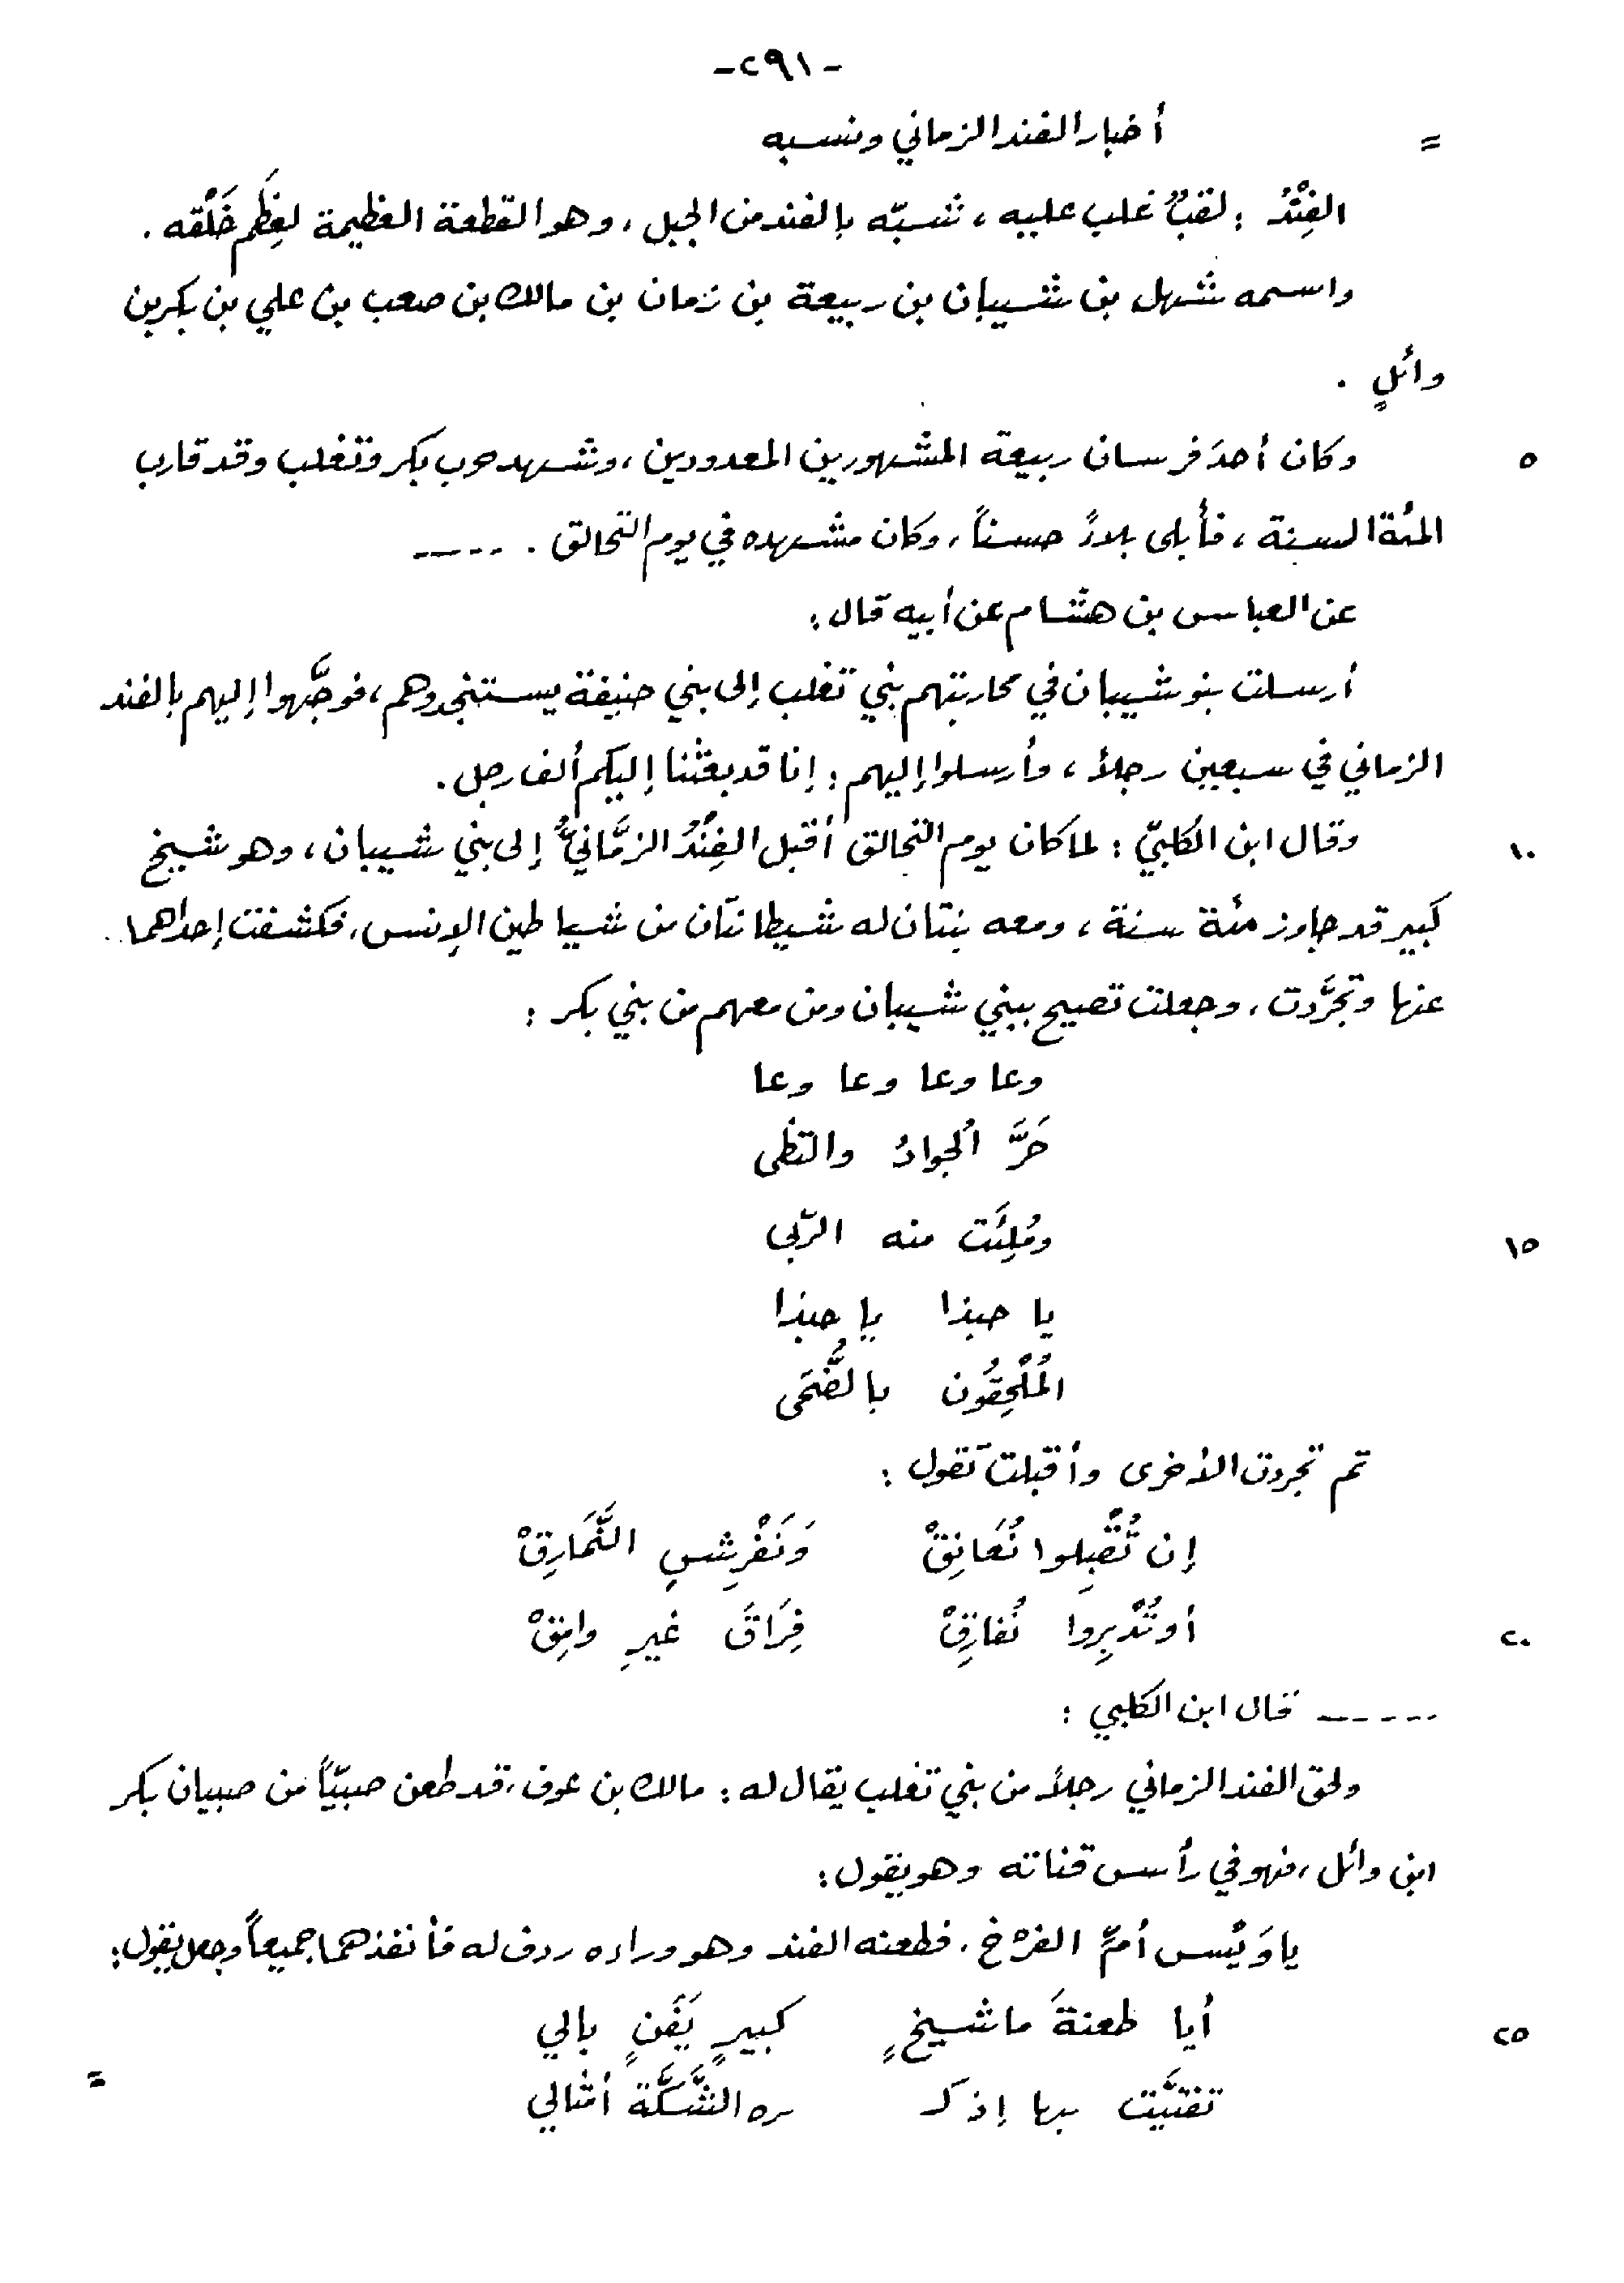 -٢٩١-
= أخبار الفند الزماني ونسبه
الفِنْدُ : لقبٌ غلب عليه ، شبّه بالفند من الجبل ، وهو القطعة العظيمة لعِظَم خَلْقه .
واسمه شهل بن شيبان بن ربيعة بن زمان بن مالك بن صعب بن علي بن بكر بن
وائلٍ .
٥ وكان أحدَ فرسان ربيعة المشهورين المعدودين ، وشهد حرب بكر وتغلب وقد قارب
المئة السنة ، فأبلى بلاءً حسناً ، وكان مشهده في يوم التحالق . -----
عن العباس بن هشام عن أبيه قال :
أرسلت بنو شيبان في محاربتهم بني تغلب إلى بني حنيفة يستنجدوهم ، فوجَّهوا إليهم بالفند
الزماني في سبعين رجلاً ، وأرسلوا إليهم : إنا قد بعثنا إليكم ألف رجل .
١٠ وقال ابن الكلبيّ : لما كان يوم التحالق أقبل الفِنْدُ الزمَّانيُّ إلى بني شيبان ، وهو شيخ
كبير قد جاوز مئة سنة ، ومعه بنتان له شيطانتان من شياطين الإنس ، فكشفت إحداهما
عنها وتجرَّدت ، وجعلت تصيح ببني شيبان ومن معهم من بني بكر :
وعا وعا وعا وعا
حَرَّ الجوادُ والتظى
١٥ ومُلِئَت منه الرّبى
يا حبذا يا حبذا
المُلْحِقُون بالضُّحَى
ثم تجردت الأخرى وأقبلت تقول :
إن تُقْبِلوا نُعَانِقْ وَنَفْرِشِ النَّمَارِقْ
٢٠ أو تُدْبِروا نُفارِقْ فِرَاقَ غيرِ وامِقْ
------ قال ابن الكلبي :
ولحق الفند الزماني رجلاً من بني تغلب يقال له : مالك بن عوف ، قد طعن صبيّاً من صبيان بكر
ابن وائل ، فهو في رأس قناته وهو يقول :
يا وَيْسَ أمِّ الفرْخ . فطعنه الفند وهو وراءه ردف له فأنفذهما جميعاً وجعل يقول :
٢٥ أيا طعنةَ ما شيخٍ كبيرٍ يَفَنٍ بالي
تفتيَّت بها إذ كـ ـره الشَّكَّة أمثالي
=